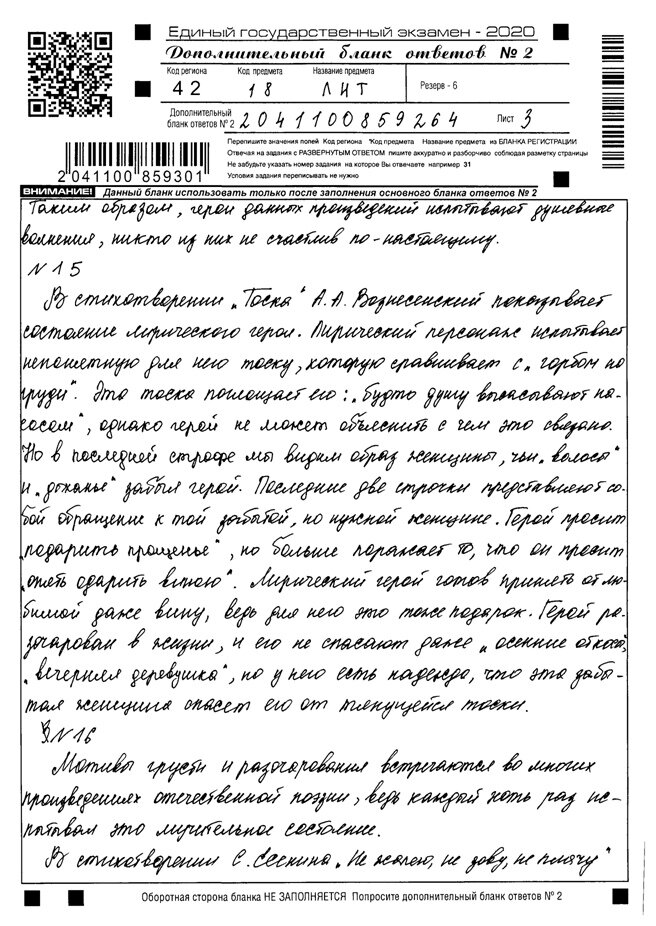 Единый государственный экзамен - 2020
Дополнительный бланк ответов № 2
Код региона Код предмета Название предмета
42 18 ЛИТ Резерв - 6
Дополнительный
бланк ответов № 2 2041100859264 Лист 3
Перепишите значения полей Код региона Код предмета Название предмета из БЛАНКА РЕГИСТРАЦИИ
Отвечая на задания с РАЗВЕРНУТЫМ ОТВЕТОМ пишите аккуратно и разборчиво соблюдая разметку страницы
Не забудьте указать номер задания на которое Вы отвечаете например 31
Условия задания переписывать не нужно
2 041100 859301
ВНИМАНИЕ! Данный бланк использовать только после заполнения основного бланка ответов № 2
Таким образом, герои данных произведений испытывают душевные
волнения, никто из них не счастлив по-настоящему.
N15
В стихотворении „Тоска" А.А. Вознесенский показывает
состояние лирического героя. Лирический персонаж испытывает
непонятную для него тоску, которую сравнивает с „горбом на
груди". Эта тоска поглощает его: „будто душу высасывают на-
сосом", однако герой не может объяснить с чем это связано.
Но в последней строфе мы видим образ женщины, чьи „волосы"
и „дыханье" забыл герой. Последние две строчки представляют со-
бой обращение к той забытой, но нужной женщине. Герой просит
"подарить прощенье", но больше поражает то, что он просит
"опять одарить виною". Лирический герой готов принять от лю-
бимой даже вину, ведь для него это тоже подарок. Герой ра-
зочарован в жизни, и его не спасают даже „осенние откосы,
„вечерняя деревушка", но у него есть надежда, что эта забы-
тая женщина спасет его от тянущейся тоски.
N16
Мотивы грусти и разочарования встречаются во многих
произведениях отечественной поэзии, ведь каждый хоть раз ис-
пытывал это мучительное состояние.
В стихотворении С. Есенина „Не жалею, не зову, не плачу"
Оборотная сторона бланка НЕ ЗАПОЛНЯЕТСЯ Попросите дополнительный бланк ответов № 2